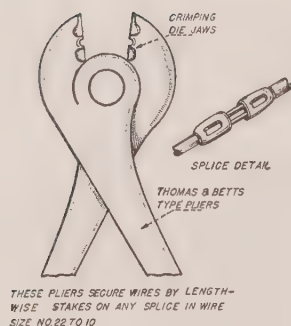 CRIMPING
DIE JAWS
SPLICE DETAIL
THOMAS & BETTS
TYPE PLIERS
THESE PLIERS SECURE WIRES BY LENGTH-
WISE STAKES ON ANY SPLICE IN WIRE
SIZE NO.22 TO 10